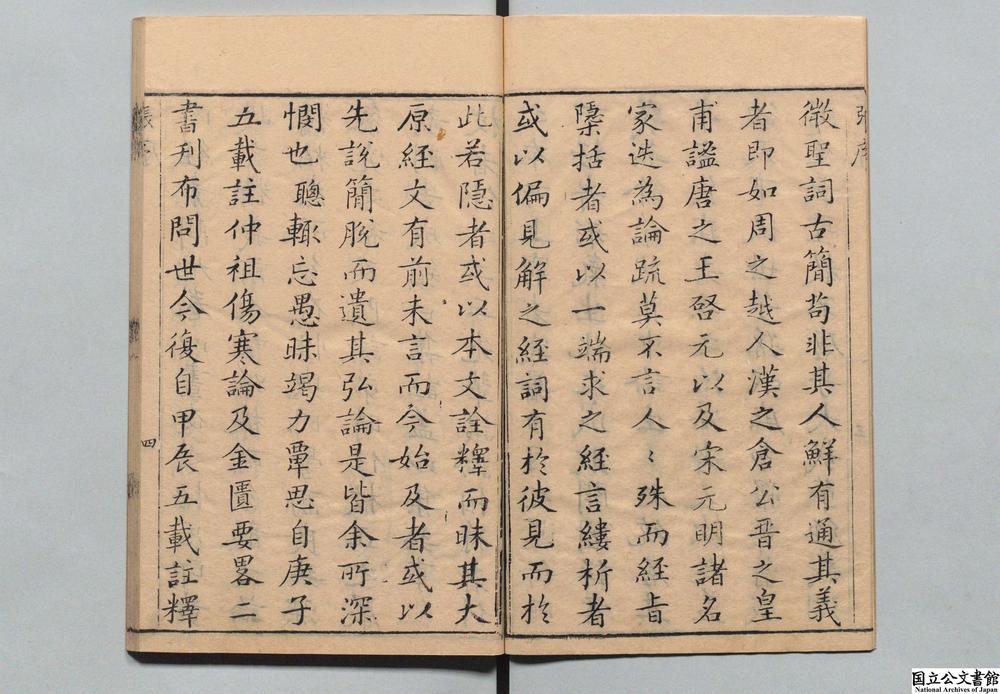 張序
微聖詞古簡苟非其人鮮有通其義
者即如周之越人漢之倉公晋之皇
甫謐唐之王啓元以及宋元明諸名
家迭為論疏莫不言人〻殊而經旨
隱括者或以一端求之經言縷析者
或以偏見解之經詞有於彼見而於
此若隱者或以本文詮釋而昧其大
原經文有前未言而今始及者或以
先說簡脫而遺其弘論是皆余所深
憫也聰輙忘愚昧竭力覃思自庚子
五載註仲祖傷寒論及金匱要畧二
書刋布問世今復自甲辰五載註釋
張序
四
国立公文書館
National Archives of Japan